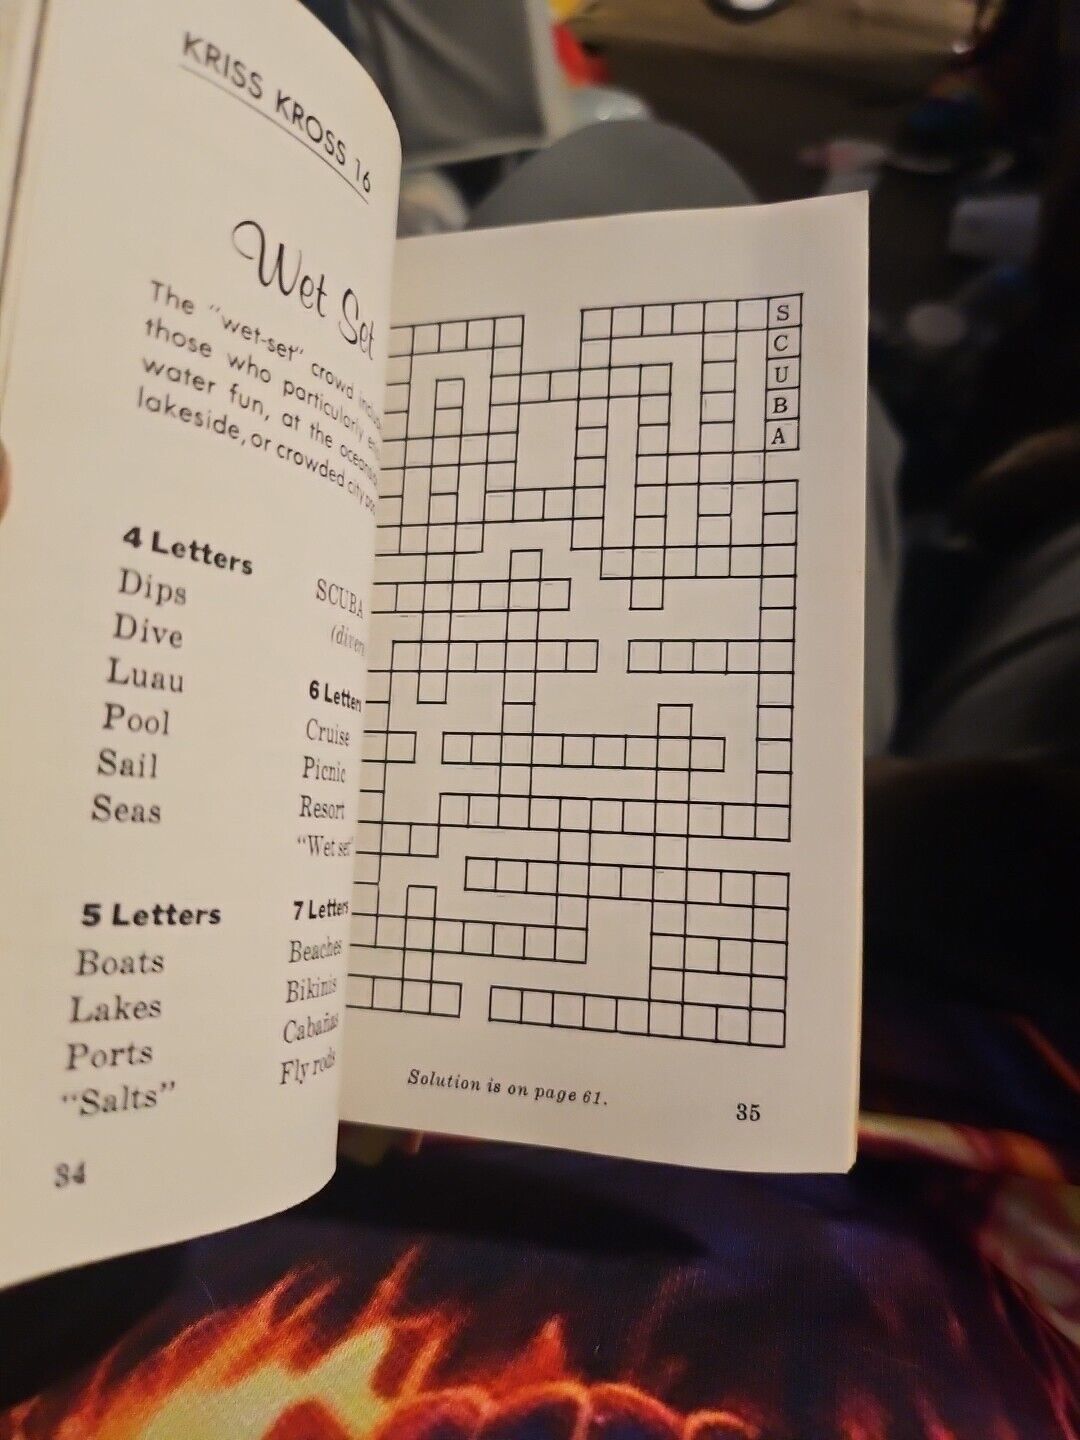 KRISS KROSS 16
Wet Set
The "wet-set" crowd
those who particularly
water fun, at the
lakeside, or crowded city
4 Letters
Dips
Dive
Luau
Pool
Sail
Seas
5 Letters
Boats
Lakes
Ports
"Salts"
34
SCUBA
6 Letters
Cruise
Picnic
Resort
"Wet set"
7 Letters
Beaches
Bikinis
Cabañas
Fly rods
S
C
U
B
A
Solution is on page 61.
35